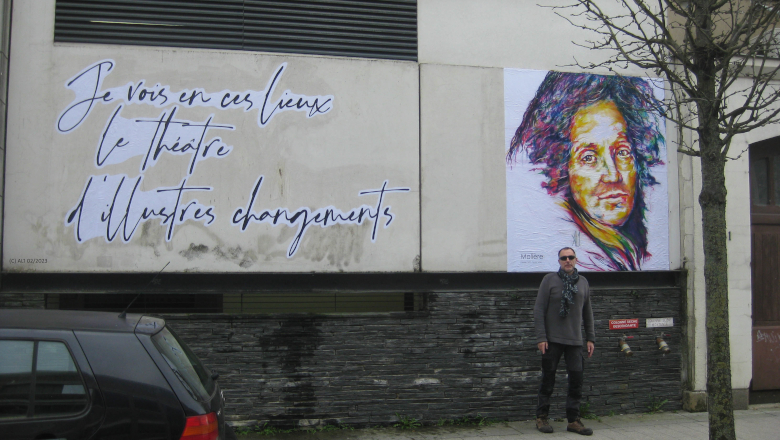 Je vois en ces lieux
le théâtre
d'illustres changements
(C) ALI 02/2023
Molière
COLONNE SECHE